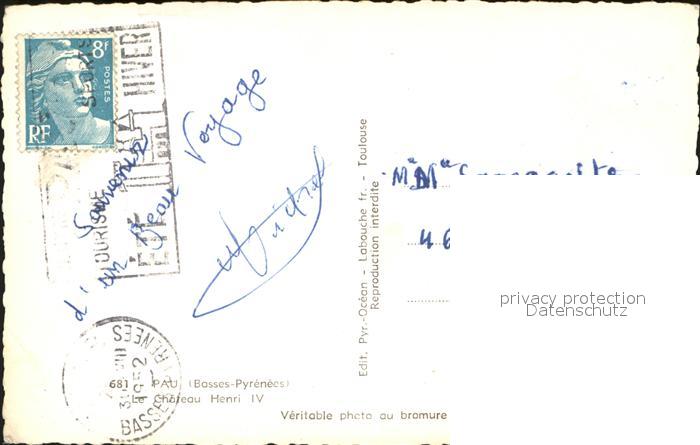 8f
POSTES
RF
SPORTS
HIVER
TOURISME
ÉTÉ
Souvenir
d'un Beau Voyage
Edit. Pyr.-Océan - Labouche fr. - Toulouse
Reproduction interdite
46
privacy protection
Datenschutz
1952
BASSES PYRENEES
681 PAU (Basses-Pyrénées)
Le Château Henri IV
Véritable photo au bromure